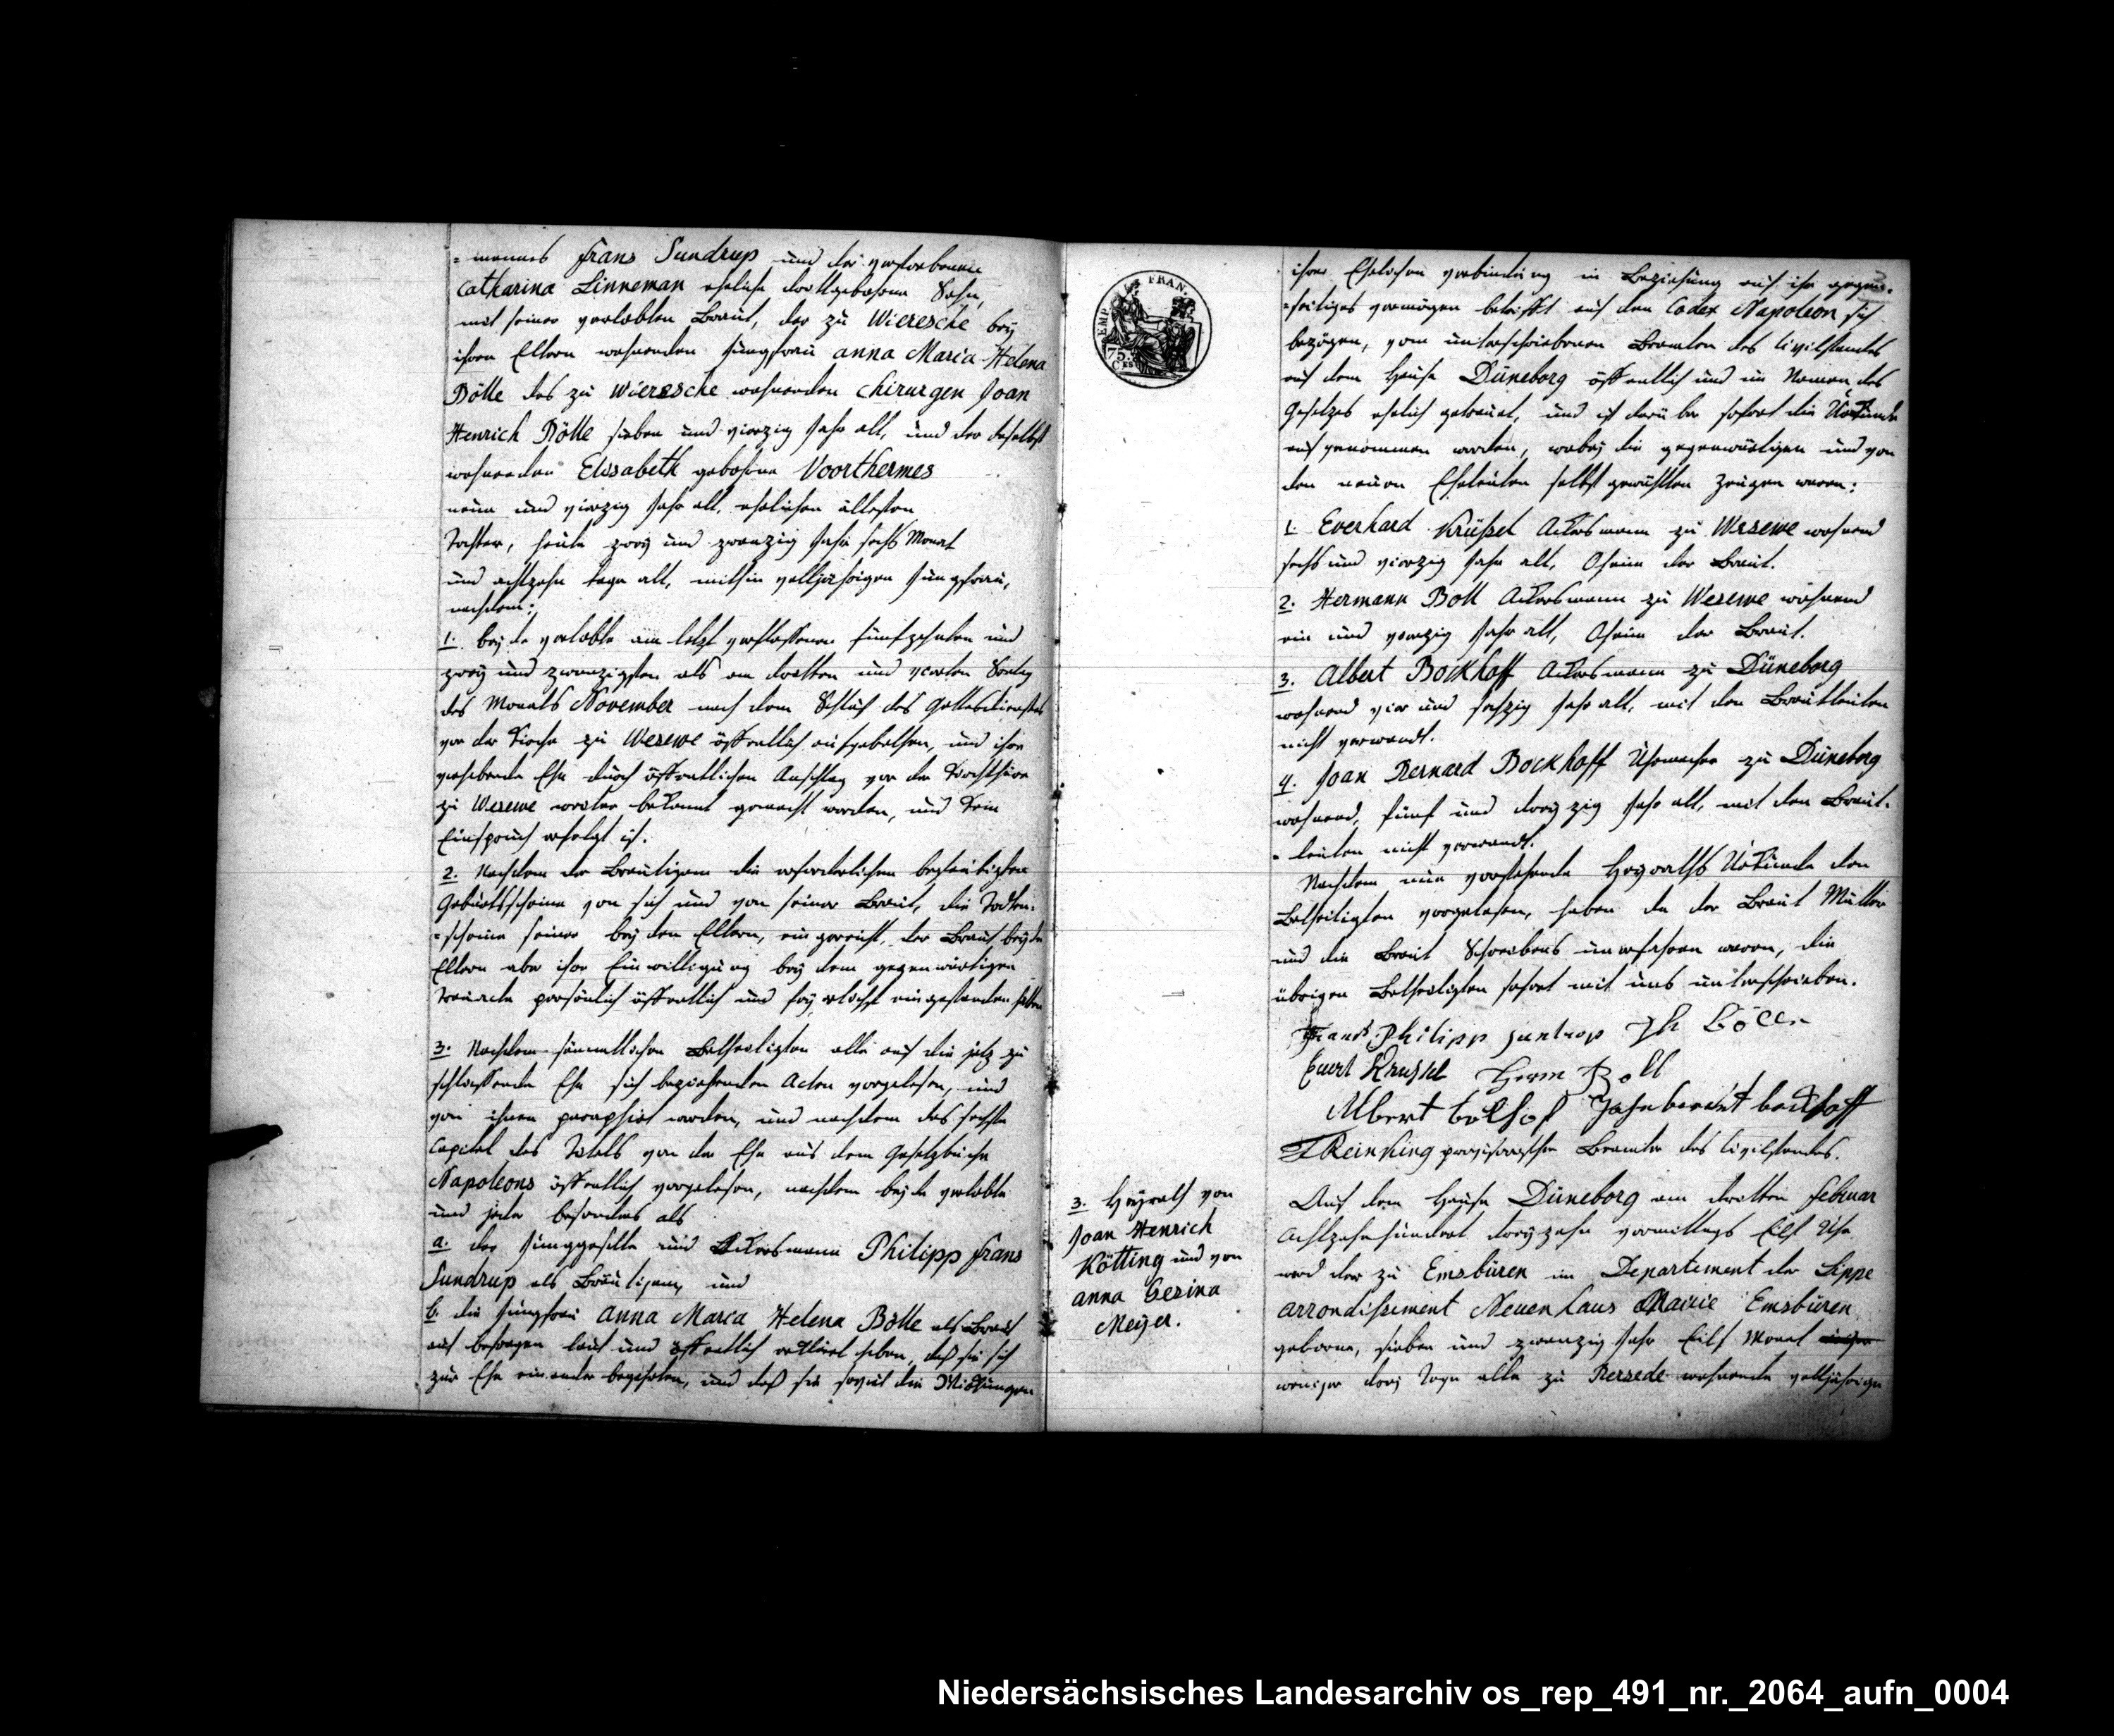 =mannes Frans Sundrup und der verstorbenen
Catharina Linneman ehelich drittgebohrne Sohn,
mit seiner verlobten Braut, der zu Wieresche bey
ihren Eltern wohnenden Jungfrau anna Maria Helena
Bölle des zu Wieresche wohnenden Chirurgen Joan
Henrich Bölle sieben und vierzig Jahr alt, und der daselbst
wohnenden Elisabeth gebohrne Voorthermes
neun und vierzig Jahr alt, ehelichen ältesten
Tochter, heute zwey und zwanzig Jahr sechs Monat
und achtzehn tage alt, mithin volljährigen Jungfrau,
nachdem:
1. beyde verlobte am letzt verflossenen fünfzehnten und
zwey und zwanzigsten als am dritten und vierten Sontag
des Monats November nach dem Schluß des Gottesdienstes
vor der Kirche zu Wesewe öffentlich aufgebothen, und ihre
vorhabende Ehe durch öffentlichen Anschlag vor der Kirchthüre
zu Wesewe weiter bekannt gemacht worden, und kein
Einspruch erfolgt ist.
2. Nachdem der Bräutigam die erforderlichen beglaubigten
Geburtsscheine von sich und von seiner Braut, die Todten=
=scheine seiner beyden Eltern, eingereicht, der Braut beyde
Eltern aber ihre Einwilligung bey dem gegenwärtigen
persönlich öffentlich und eingestanden haben
3. Nachdem sämmtlichen Betheiligten alle auf die jetz zu
schliessende Ehe sich beziehenden Acten vorgelesen, und
von ihnen paraphirt worden, und nachdem das sechste
Capitel des Titels von der Ehe aus dem Gesetzbuche
Napoleons öffentlich vorgelesen, nachdem beyde verlobte
und jeder besonders als
a. der Junggeselle und Ackersmann Philipp Frans
Sundrup als Bräutigam, und
b. die Jungfrau Anna Maria Helena Bölle als Braut
auf befragen laut und öffentlich erklärt haben, daß sie sich
zur Ehe einander begehrten, und daß sie soviel die Wirkungen
EMP. FRAN.
75.
Cts
ihrer Ehelichen verbindung in Beziehung auf ihr gegen=
=seitiges vermögen betrifft auf den Codex Napoleon sich
bezögen, vom unterschriebenen Beamten des Civilstandes
auf dem Hause Düneborg öffentlich und im Namen des
Gesetzes ehelich getrauet, und ist darüber sofort die Urkunde
aufgenommen worden, wobey die gegenwärtigen und von
den neuen Eheleuten selbst gewählten Zeugen waren:
1. Everhard Krüßel Ackersmann zu Wesewe wohnend
sechs und vierzig Jahr alt, Oheim der Braut.
2. Hermann Boll Ackersmann zu Wesewe wohnend
ein und vierzig Jahr alt, Oheim der Braut.
3. Albert Bockhoff Ackersmann zu Düneborg
wohnend vier und sechzig Jahr alt, mit den Brautleuten
nicht verwandt.
4. Joan Bernard Bockhoff Uhrmacher zu Düneborg
wohnend, fünf und dreyzig Jahr alt, mit den Braut=
=leuten nicht verwandt.
Nachdem nun vorstehende Heyraths Urkunde den
Betheiligten vorgelesen, haben da der Braut Mutter
und die Braut Schreibens unerfahren waren, die
übrigen Betheiligten sofort mit uns unterschrieben.
Frans Philipp Suntrop JH Bölle
Evert Krussel Herm Boll
Albert bokhof Jahn berent bockhoff
Reinking provisorischer Beamter des Civilstandes.
3. Heyrath von
Joan Henrich
Kötting und von
anna Gesina
Meyer.
Auf dem Hause Düneborg am dritten Februar
Achtzehnhundert dreyzehn vormittags Eilf Uhr
ward der zu Emsbüren im Departement der Lippe
arrondissement Neuenhaus Mairie Emsbüren
geborne, sieben und zwanzig Jahr Eilf Monat
weniger drey Tage alte zu Bersede wohnende volljährige
Niedersächsisches Landesarchiv os_rep_491_nr._2064_aufn_0004